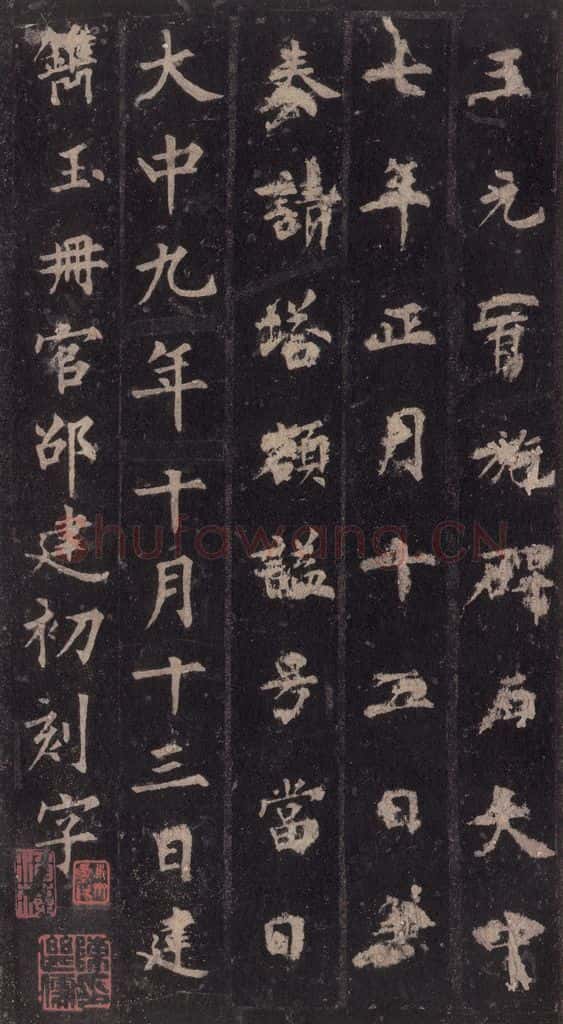 王元宥施碑石大中
七年正月十五日
奏請塔額謚号當日
大中九年十月十三日建
鐫玉冊官邵建初刻字
shufawang.CN